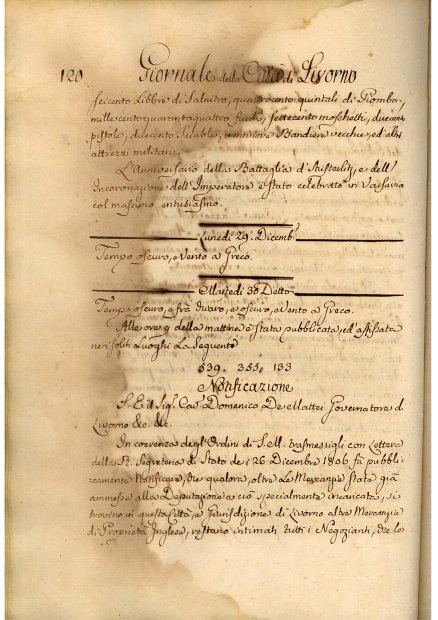 120 Giornale della Città di Livorno
seicento Libbre di Salnitro, quattrocento quintali di Piombo,
mille cento quarantaquattro fucili, settecento moschetti, duecento
pistole, duecento Sciable, Bandiere vecchie, ed altri
attrezzi militari.
L'Anniversario della Battaglia d'Austerlitz, e dell'
Incoronazione dell'Imperatore è stato celebrato in Varsavia
col massimo entusiasmo.
Lunedì 29. Dicemb.
Tempo oscuro, e Vento a Greco.
Martedì 30 Detto
Tempo oscuro, e frà chiaro, e oscuro, e Vento a Greco.
Alle ore 9 della mattina è stata pubblicata, ed affissata
nei soliti Luoghi La Seguente
539. 355. 133
Notificazione
S. E. il Sig. Cav. Domenico De Mattei Governatore di
Livorno &c. &c.
In coerenza degl'Ordini di S. M. trasmessigli con Lettera
della R. Segreteria di Stato de i 26 Dicembre 1806 fà pubbli-
camente Notificare, che qualora, oltre Le Mercanzie state già
ammesse alla Deputazione a ciò specialmente incaricata, si
trovino in questa Città, e Giurisdizione di Livorno altre Mercanzie
di Proprietà Inglese, restano intimati tutti i Negozianti, che le